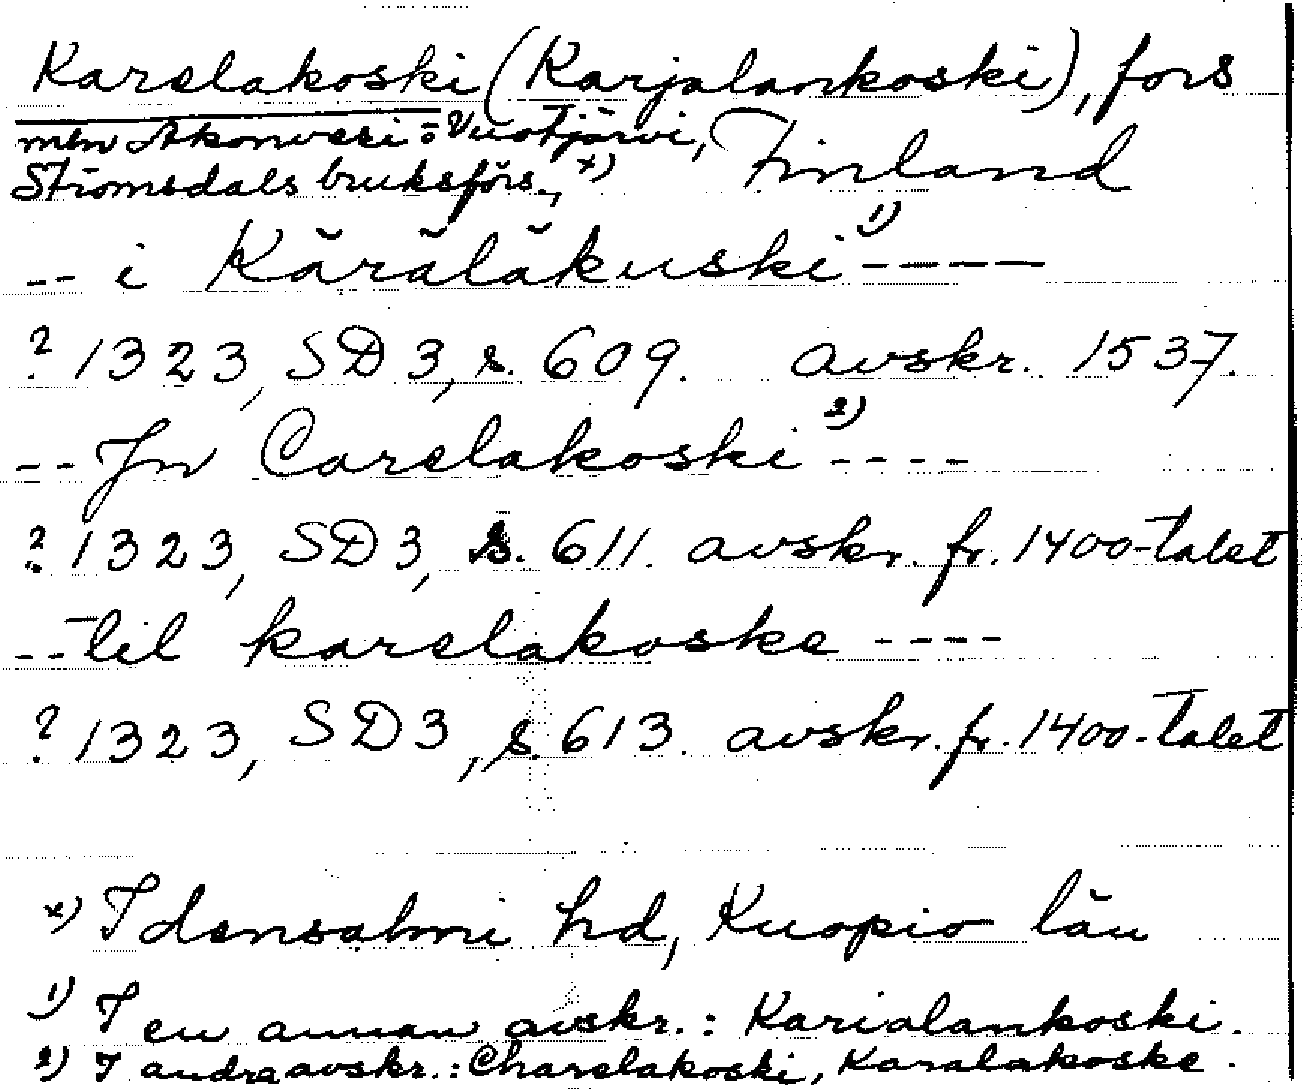 Karelakoski (Karjalankoski), fors
mln Akonvesi o. Vuotjärvi, Finland
Strömsdals bruksförs., x)
-- i Käräläkuski 1) ----
? 1323, SD 3, s. 609. avskr. 1537.
-- Jn Carelakoski 2) ----
? 1323, SD 3, s. 611. avskr. fr. 1400-talet
-- til karelakoske ----
? 1323, SD 3, s. 613. avskr. fr. 1400-talet
x) Idensalmi hd, Kuopio län
1) I en annan avskr.: Karialankoski.
2) I andra avskr.: Charelakoski, Karalakoske.